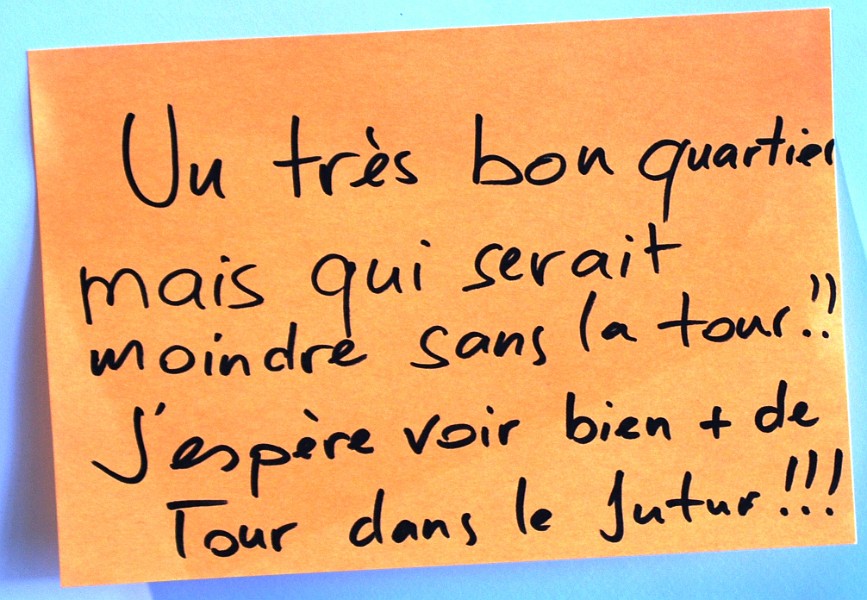 Un très bon quartier
mais qui serait
moindre sans la tour!!
J'espère voir bien + de
Tour dans le futur!!!